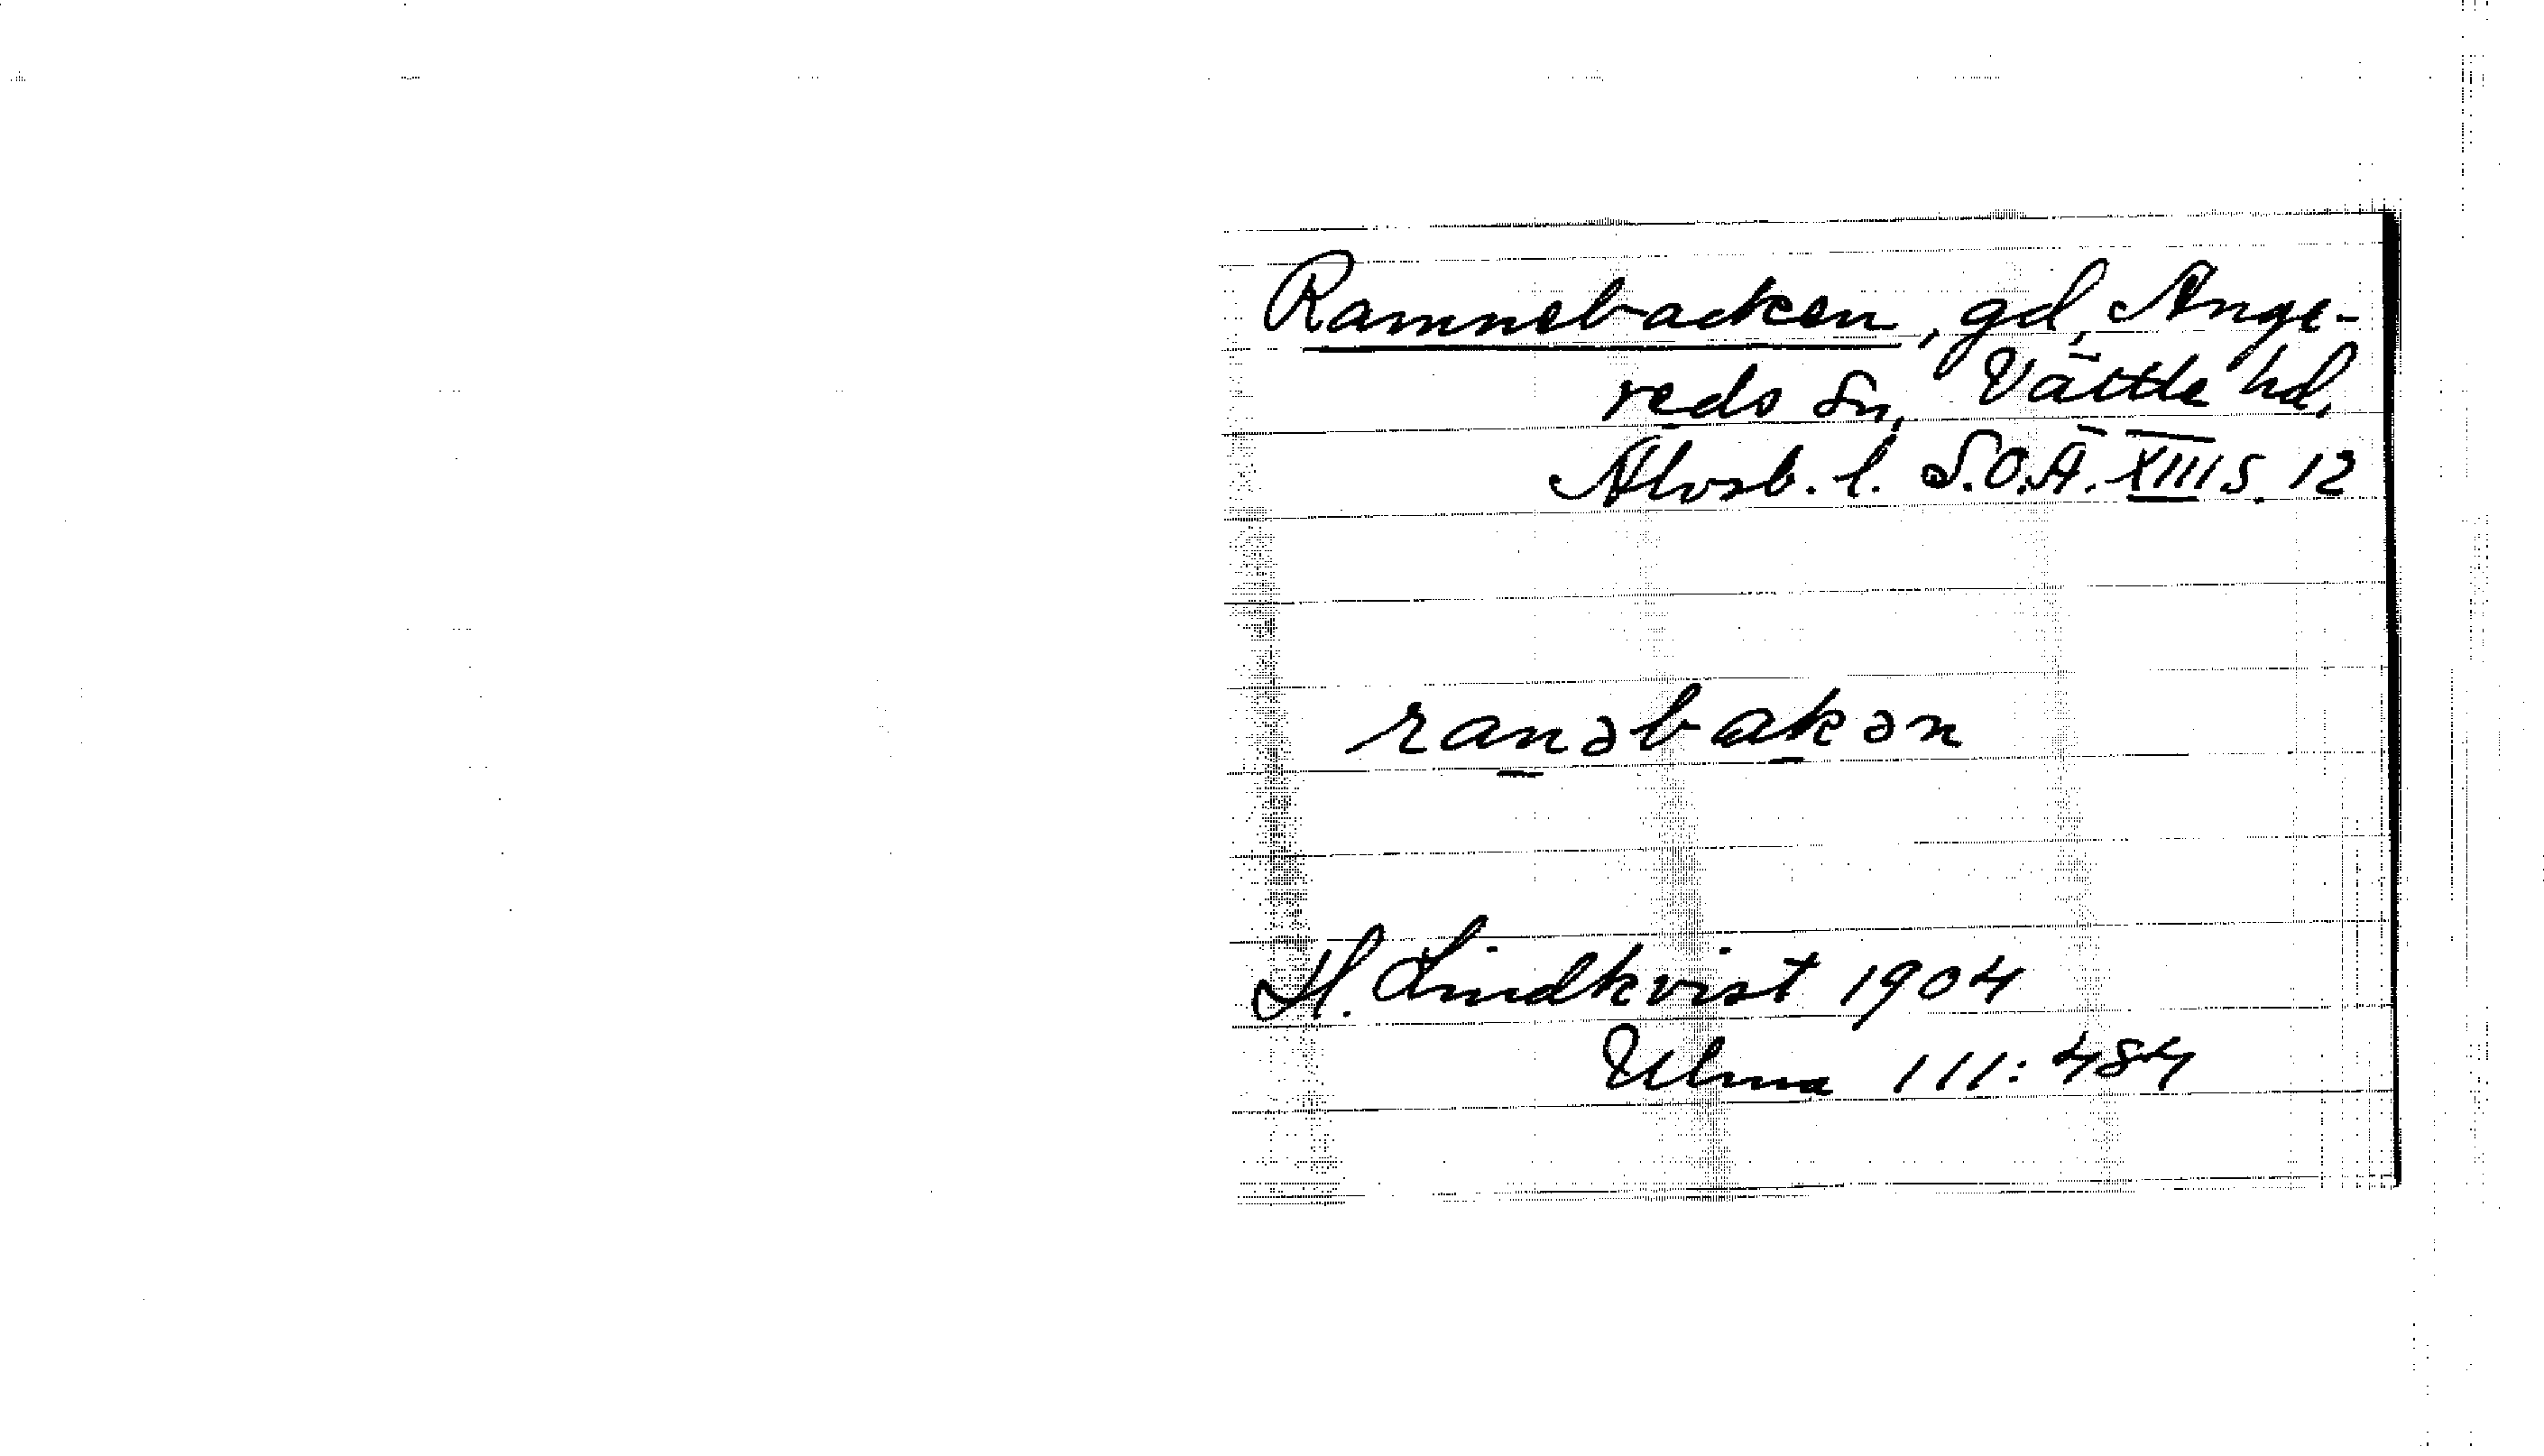 Ramnebacken, gd, Ange-
reds sn, Vättle hd.
Älvsb. l. S.O.Ä. XIII s. 12
ranəbakən
H. Lindkvist 1904
Ulma 111:484